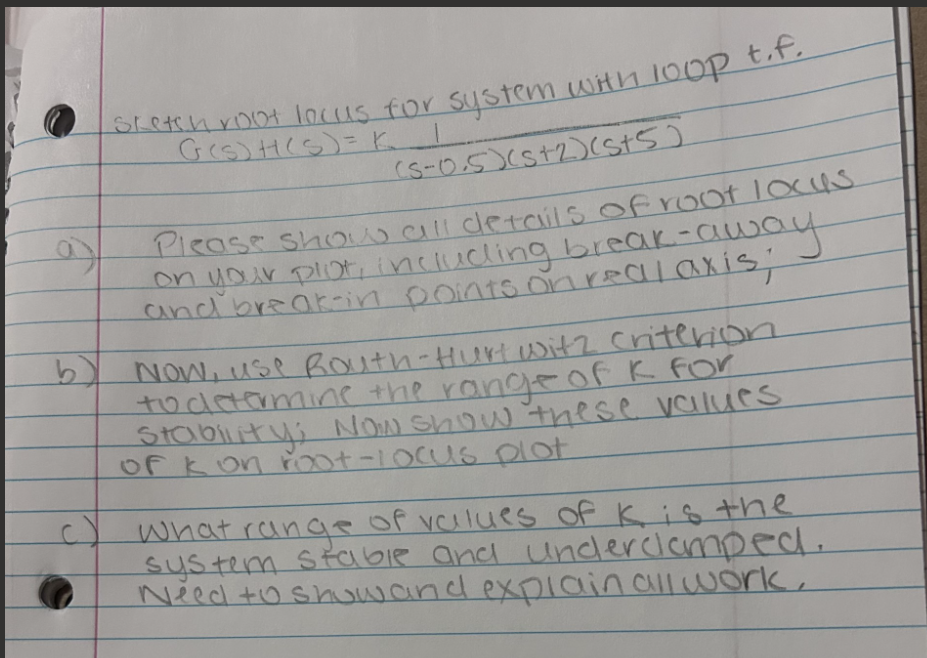 Sketch root locus for system with loop t.f.
G(s)H(s)=K 1
(s-0.5)(s+2)(s+5)
a) Please show all details of root locus
on your plot, including break-away
and break-in points on real axis;
b) Now, use Routh-Hurtwitz criterion
to determine the range of K for
stability; Now show these values
of K on root-locus plot
c) What range of values of K is the
system stable and underdamped.
Need to show and explain all work.